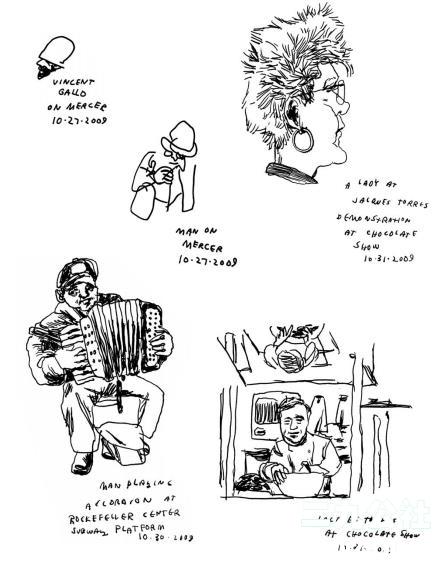 VINCENT
GALLO
ON MERCER
10·27·2009
MAN ON
MERCER
10·27·2009
A LADY AT
JACQUES TORRES
DEMONSTRATION
AT CHOCOLATE
SHOW
10·31·2009
MAN PLAYING
ACCORDION AT
ROCKEFELLER CENTER
SUBWAY PLATFORM
10·30·2009
AT CHOCOLATE SHOW